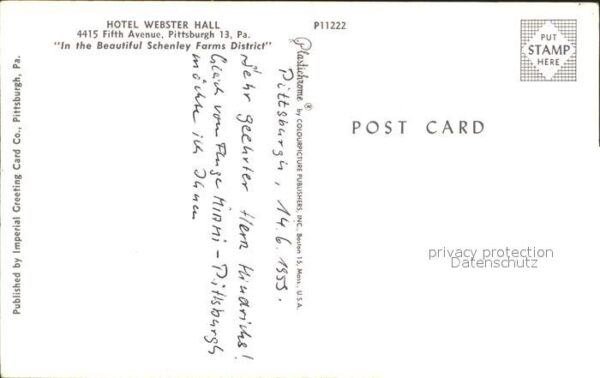 HOTEL WEBSTER HALL
4415 Fifth Avenue, Pittsburgh 13, Pa.
"In the Beautiful Schenley Farms District"
P11222
PUT
STAMP
HERE
POST CARD
Published by Imperial Greeting Card Co., Pittsburgh, Pa.
Plastichrome® by COLOURPICTURE PUBLISHERS, INC., Boston 15, Mass., U.S.A.
Pittsburgh, 14.6.1959.
Sehr geehrter Herr Hindrichs!
Gleich vom Fluge MIAMI - Pittsburgh
möchte ich Ihnen
privacy protection
Datenschutz